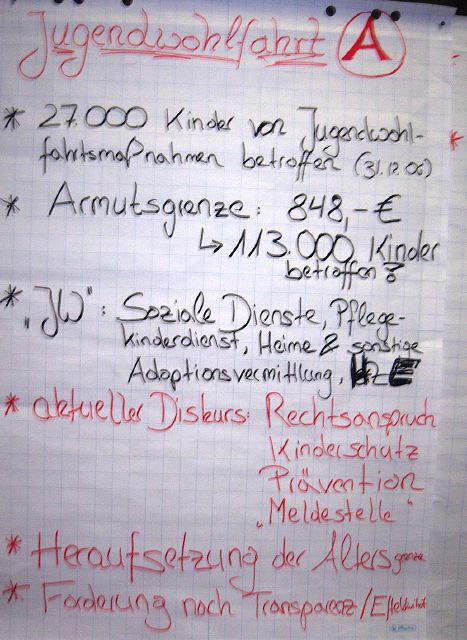 Jugendwohlfahrt A
* 27.000 Kinder von Jugendwohl-
fahrtsmaßnahmen betroffen (31.12.06)
* Armutsgrenze: 848,-€
↳ 113.000 Kinder
betroffen?
* "JW": Soziale Dienste, Pflege-
kinderdienst, Heime & sonstige
Adoptionsvermittlung,
* aktueller Diskurs: Rechtsanspruch
Kinderschutz
Prävention
"Meldestelle"
* Heraufsetzung der Altersgrenze
* Forderung nach Transparenz/